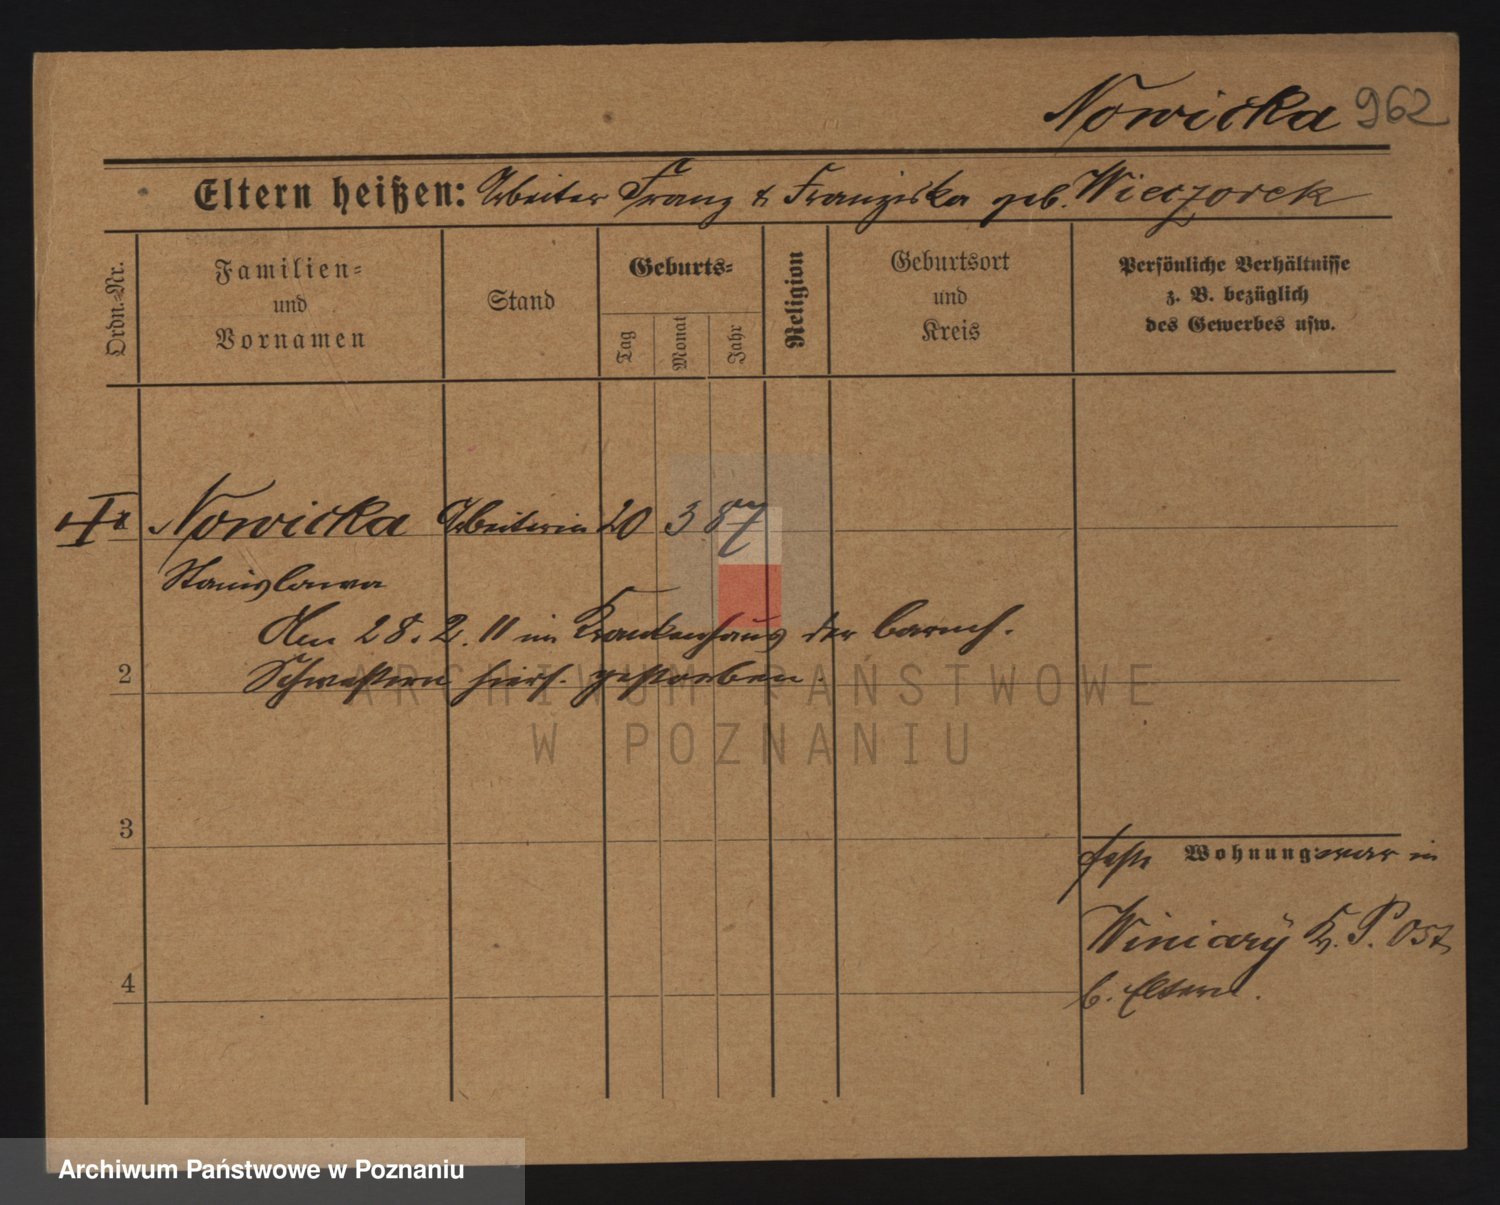 Nowicka 962
Eltern heißen: Arbeiter Franz & Franziska geb. Wieczorek
Ordn.-Nr.
Familien-
und
Vornamen
Stand
Geburts-
Tag
Monat
Jahr
Religion
Geburtsort
und
Kreis
Persönliche Verhältnisse
z. B. bezüglich
des Gewerbes usw.
Nowicka Arbeiterin 20 3 87
Stanislawa
Am 28.2.11 im Krankenhaus der barmh.
2
Schwestern hiers. gestorben.
ARCHIWUM PAŃSTWOWE
W POZNANIU
3
feste Wohnung war in
Winiary K. P. Ost
4
b. Eltern.
Archiwum Państwowe w Poznaniu